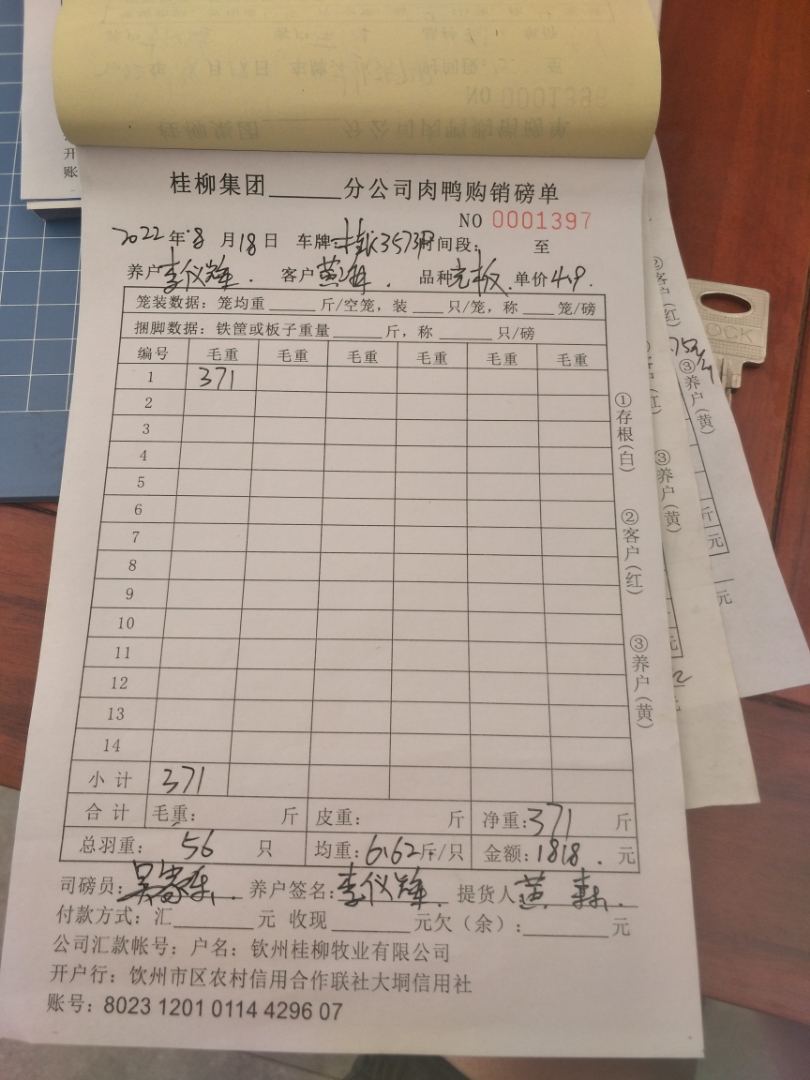 桂柳集团______分公司肉鸭购销磅单
NO 0001397
2022年8月18日 车牌 3573 时间段: 至
养户李仪辉. 客户黄 . 品种 单价4.9.
笼装数据: 笼均重____斤/空笼, 装___只/笼, 称___笼/磅
捆脚数据: 铁筐或板子重量_____斤, 称_____只/磅
编号 毛重 毛重 毛重 毛重 毛重 毛重
1 371
2
3
4
5
6
7
8
9
10
11
12
13
14
小计 371
合计 毛重: 斤 皮重: 斤 净重:371 斤
总羽重: 56 只 均重:6.62斤/只 金额:1818. 元
司磅员: 吴家东. 养户签名: 李仪辉. 提货人 黄
付款方式: 汇________元 收现________元欠(余):________元
公司汇款帐号: 户名: 钦州桂柳牧业有限公司
开户行: 钦州市区农村信用合作联社大垌信用社
账号: 8023 1201 0114 4296 07
①存根(白)
②客户(红)
③养户(黄)
③养户(黄)
③养户(黄)
斤
元
元
NO 0001396
开
账